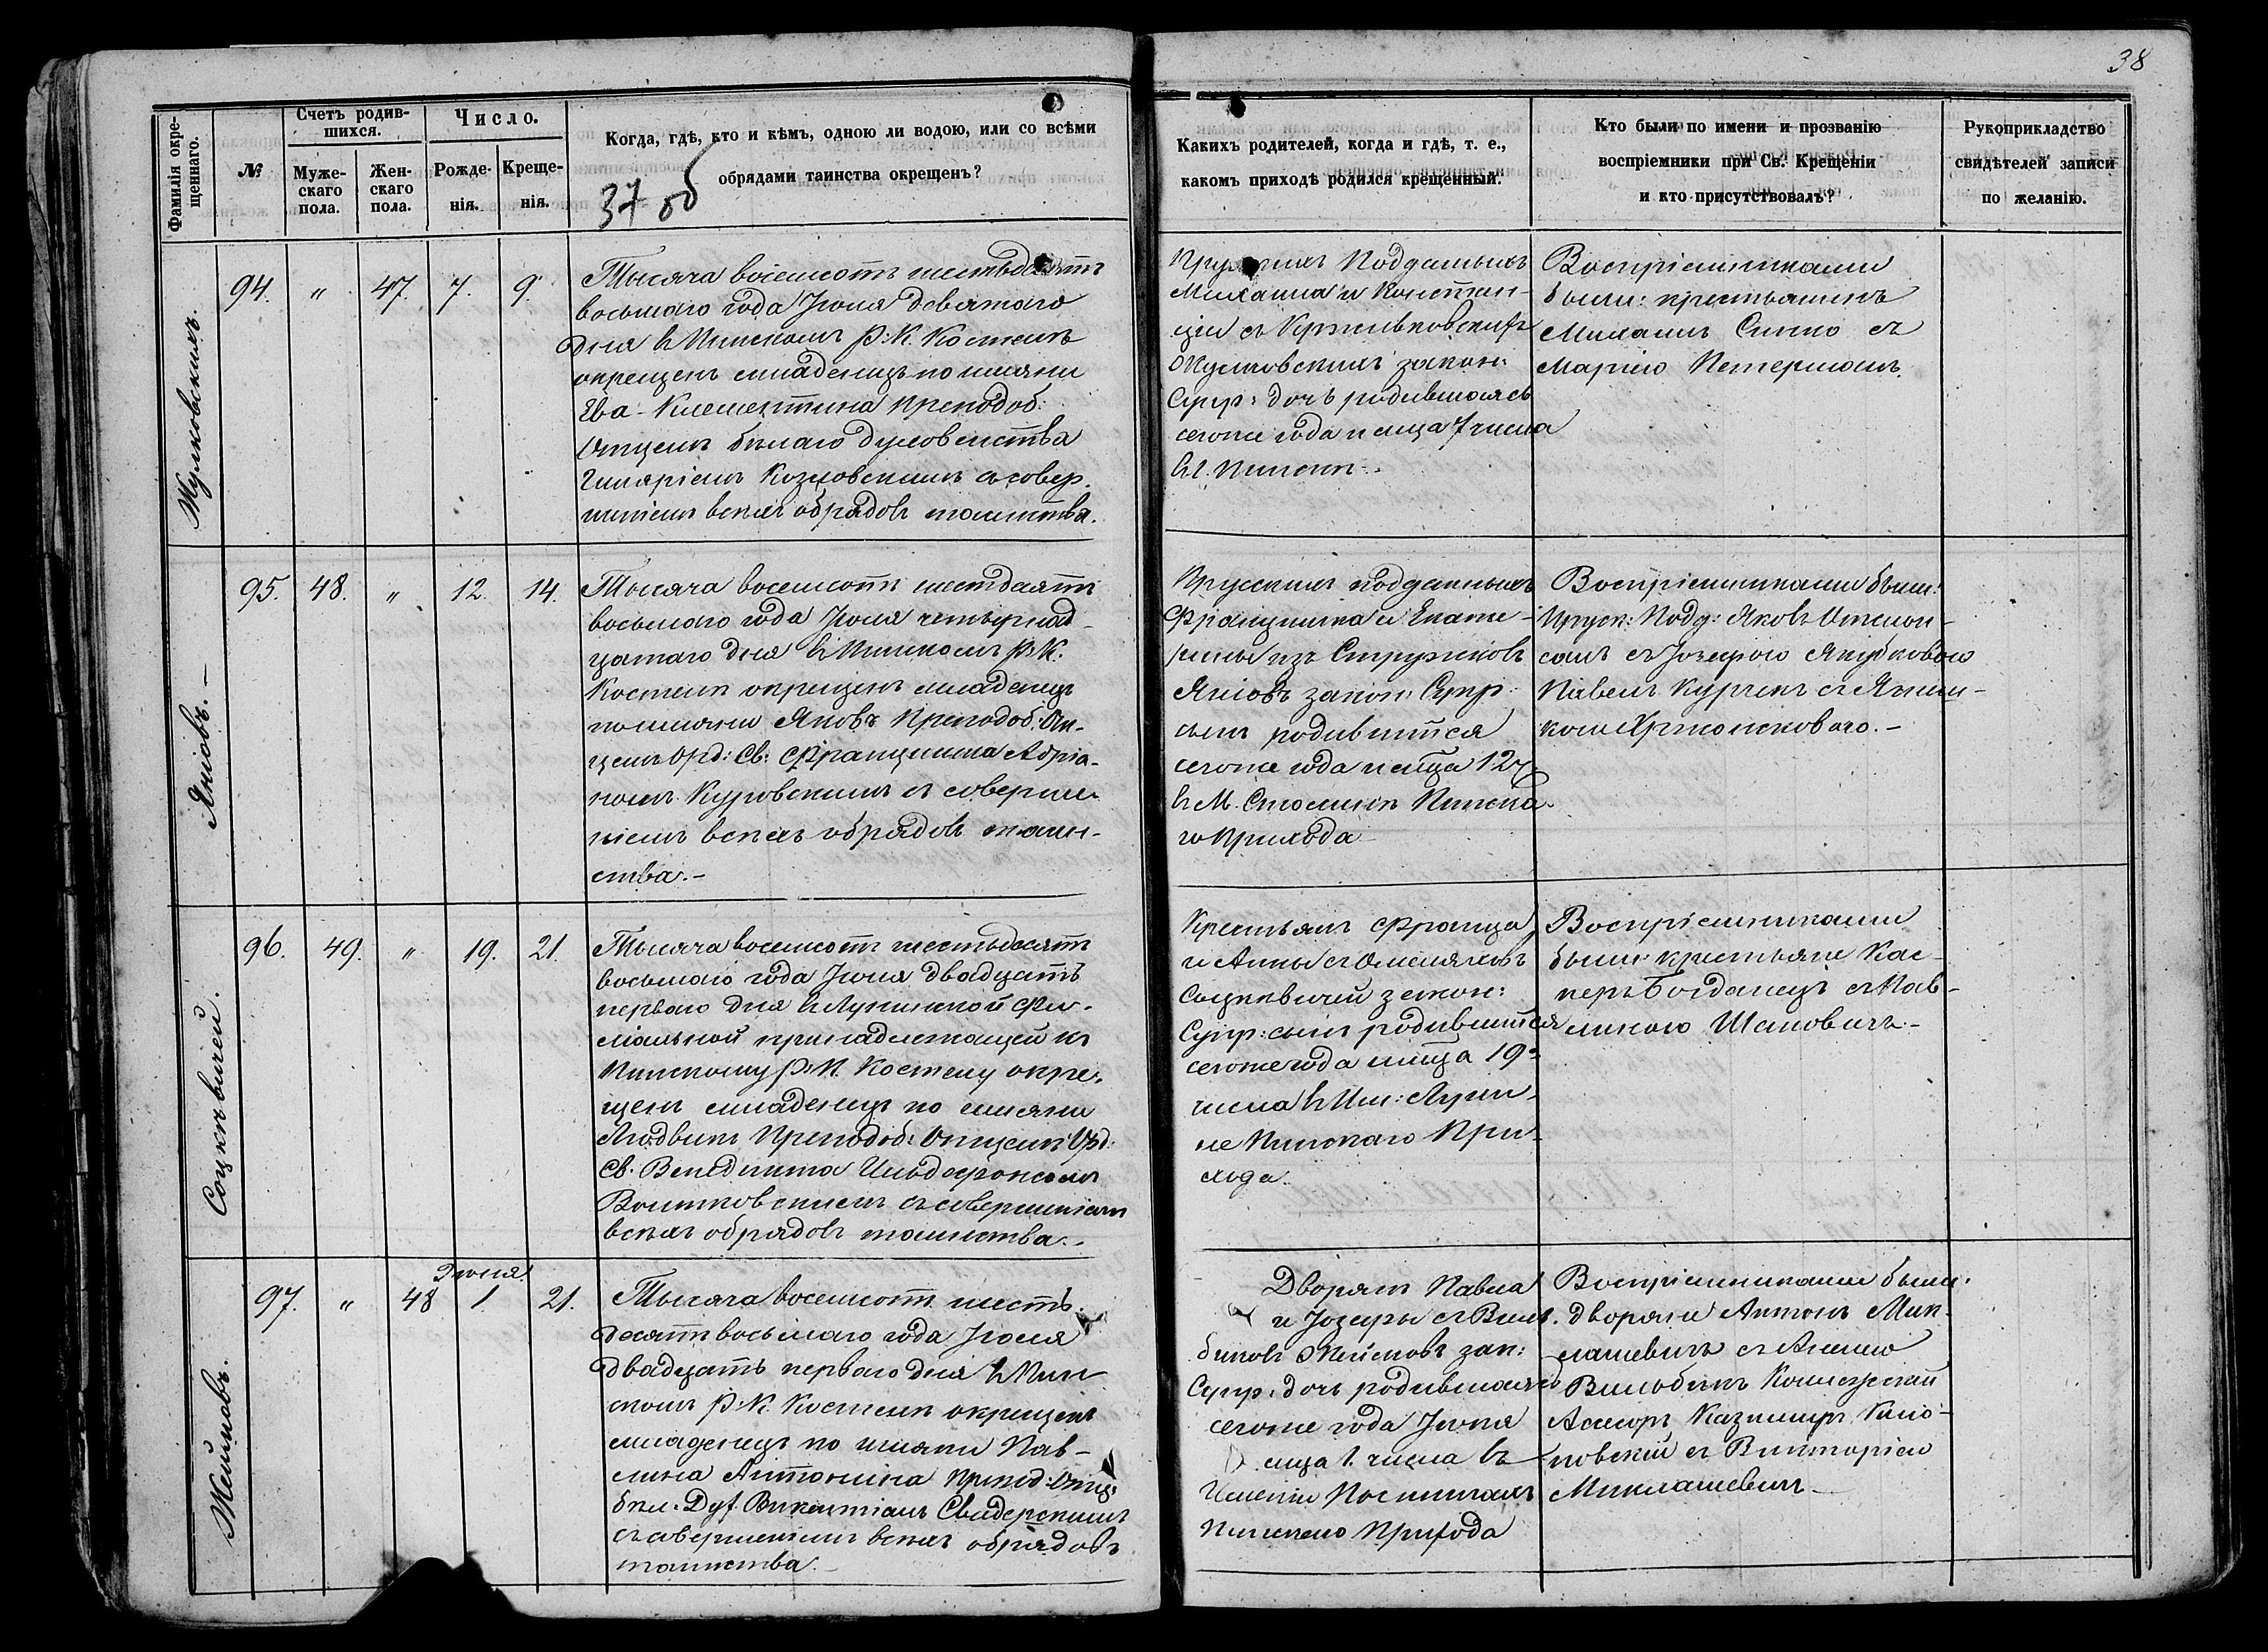 38
Фамилія окре-
щеннаго.
№
Счетъ родив-
шихся.
Муже-
скаго
пола.
Жен-
скаго
пола.
Число.
Рожде-
нія.
Креще-
нія.
Когда, гдѣ, кто и кѣмъ, одною ли водою, или со всѣми
обрядами таинства окрещенъ?
37 об
Какихъ родителей, когда и гдѣ, т. е.,
какомъ приходѣ родился крещенный.
Кто были по имени и прозванію
воспріемники при Св. Крещеніи
и кто присутствовалъ?
Рукоприкладство
свидѣтелей записи
по желанію.
94. " 47. 7. 9.
Тысяча восемсотъ шестьдесятъ
восьмаго года Іюля девятаго
дня въ Пинскомъ Р: К. Костелѣ
окрещенъ младенецъ по имяни
Ева-Клементина Преподоб:
Отцемъ бѣлаго Духовенства
Гиляріемъ Козловскимъ съ совер-
шеніемъ всѣхъ обрядовъ таинства.
Подданныхъ
Михаила и Констан-
ціи съ
закон:
Супр: дочь родившаяся
сегоже года и мца 7 числа
въ г. Пинскѣ.
Воспріемниками
были: крестьянинъ
Михаилъ съ
Маріею Петерманъ.
95. 48. " 12. 14.
Яніовъ.
Тысяча восемсотъ шестдсятъ
восьмаго года Іюля четырнад-
цатаго дня въ Пинскомъ Р: К.
Костелѣ окрещенъ младенецъ
по имяни Яковъ Преподоб: От-
цемъ Орд: Св: Франциска Адріа-
номъ Куровскимъ съ соверше-
ніемъ всѣхъ обрядовъ таин-
ства.-
Прусскихъ подданныхъ
Францишка и Екате-
рины изъ Стружиковъ
Яніовъ закон: Супр:
сынъ родившійся
сегоже года и мца 12 ч.
въ М. Столинѣ Пинска-
го Прихода
Воспріемниками были:
Прусс: Подд: Яковъ
съ Іозефою Якубковою
Павелъ Курчекъ съ
96. 49. " 19. 21.
Соцкѣвичей.
Тысяча восемсотъ шестьдесятъ
восьмаго года Іюля двадцать
перваго дня въ Лунинской Фи-
ліальной принадлежащей къ
Пинскому Р: К. Костелу окре-
щенъ младенецъ по имяни
Людвикъ Преподоб: Отцемъ Орд:
Св. Венедикта Ильдефонсомъ
Воитковскимъ съ совершеніемъ
всѣхъ обрядовъ таинства.-
Крестьянъ Франца
и Анны съ Омеляновъ
Соцкѣвичей закон:
Супр: сынъ родившійся
сегоже года мца 19го
числа въ Им: Луни-
не Пинскаго При-
хода.
Воспріемниками
были: крестьяне Кас-
перъ Богданецъ съ Пав-
линою Шановичъ.-
97. " 48 Іюня 1 21.
Жеймовъ.
Тысяча восемсотъ шесть-
десятъ восьмаго года Іюля
двадцать перваго дня въ Пин-
скомъ Р: К. Костелѣ окрещенъ
младенецъ по имяни Пав-
лина Антонина Препод: Отц:
бѣл: Дух. Викентіемъ Свидерскимъ
съ совершеніемъ всѣхъ обрядовъ
таинства.-
Дворянъ Павла
и Іозефы съ Виль-
биковъ Жеймовъ зак:
Супр: дочь родившаяся
сегоже года Іюня
мца 1. числа въ
Имѣніи
Пинскаго Прихода
Воспріемниками были:
дворяне Антонъ Мик-
лашевичъ съ Анною
Вильбикъ Коллежскій
Асесоръ Казимиръ Кли-
новскій съ Викторіею
Миклашевичъ